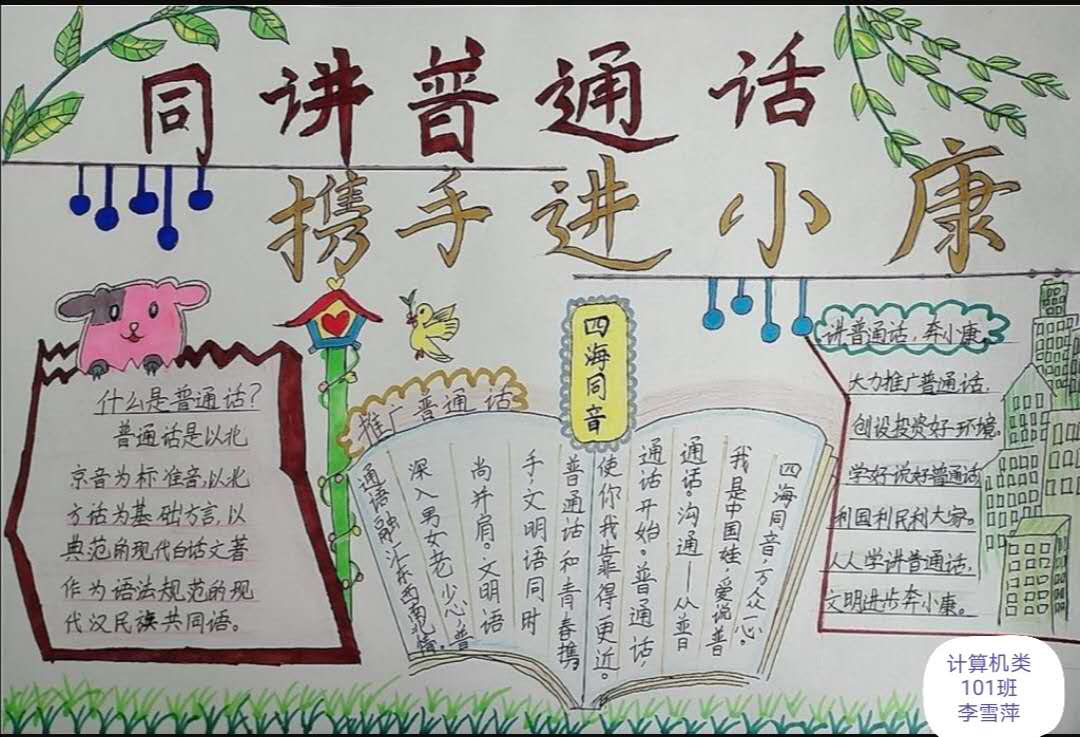 同讲普通话
携手进小康
什么是普通话？
普通话是以北
京音为标准音，以北
方话为基础方言，以
典范的现代白话文著
作为语法规范的现
代汉民族共同语。
推广普通话
四海同音
四海同音，万众一心。
我是中国娃，爱说普
通话。沟通—从普
通话开始。普通话，
使你我靠得更近。
普通话和青春携
手，文明语同时
尚并肩。文明语
深入男女老少心，普
通语融汇东西南北情。
讲普通话，奔小康。
大力推广普通话，
创设投资好环境。
学好说好普通话
利国利民利大家。
人人学讲普通话，
文明进步奔小康。
计算机类
101班
李雪萍